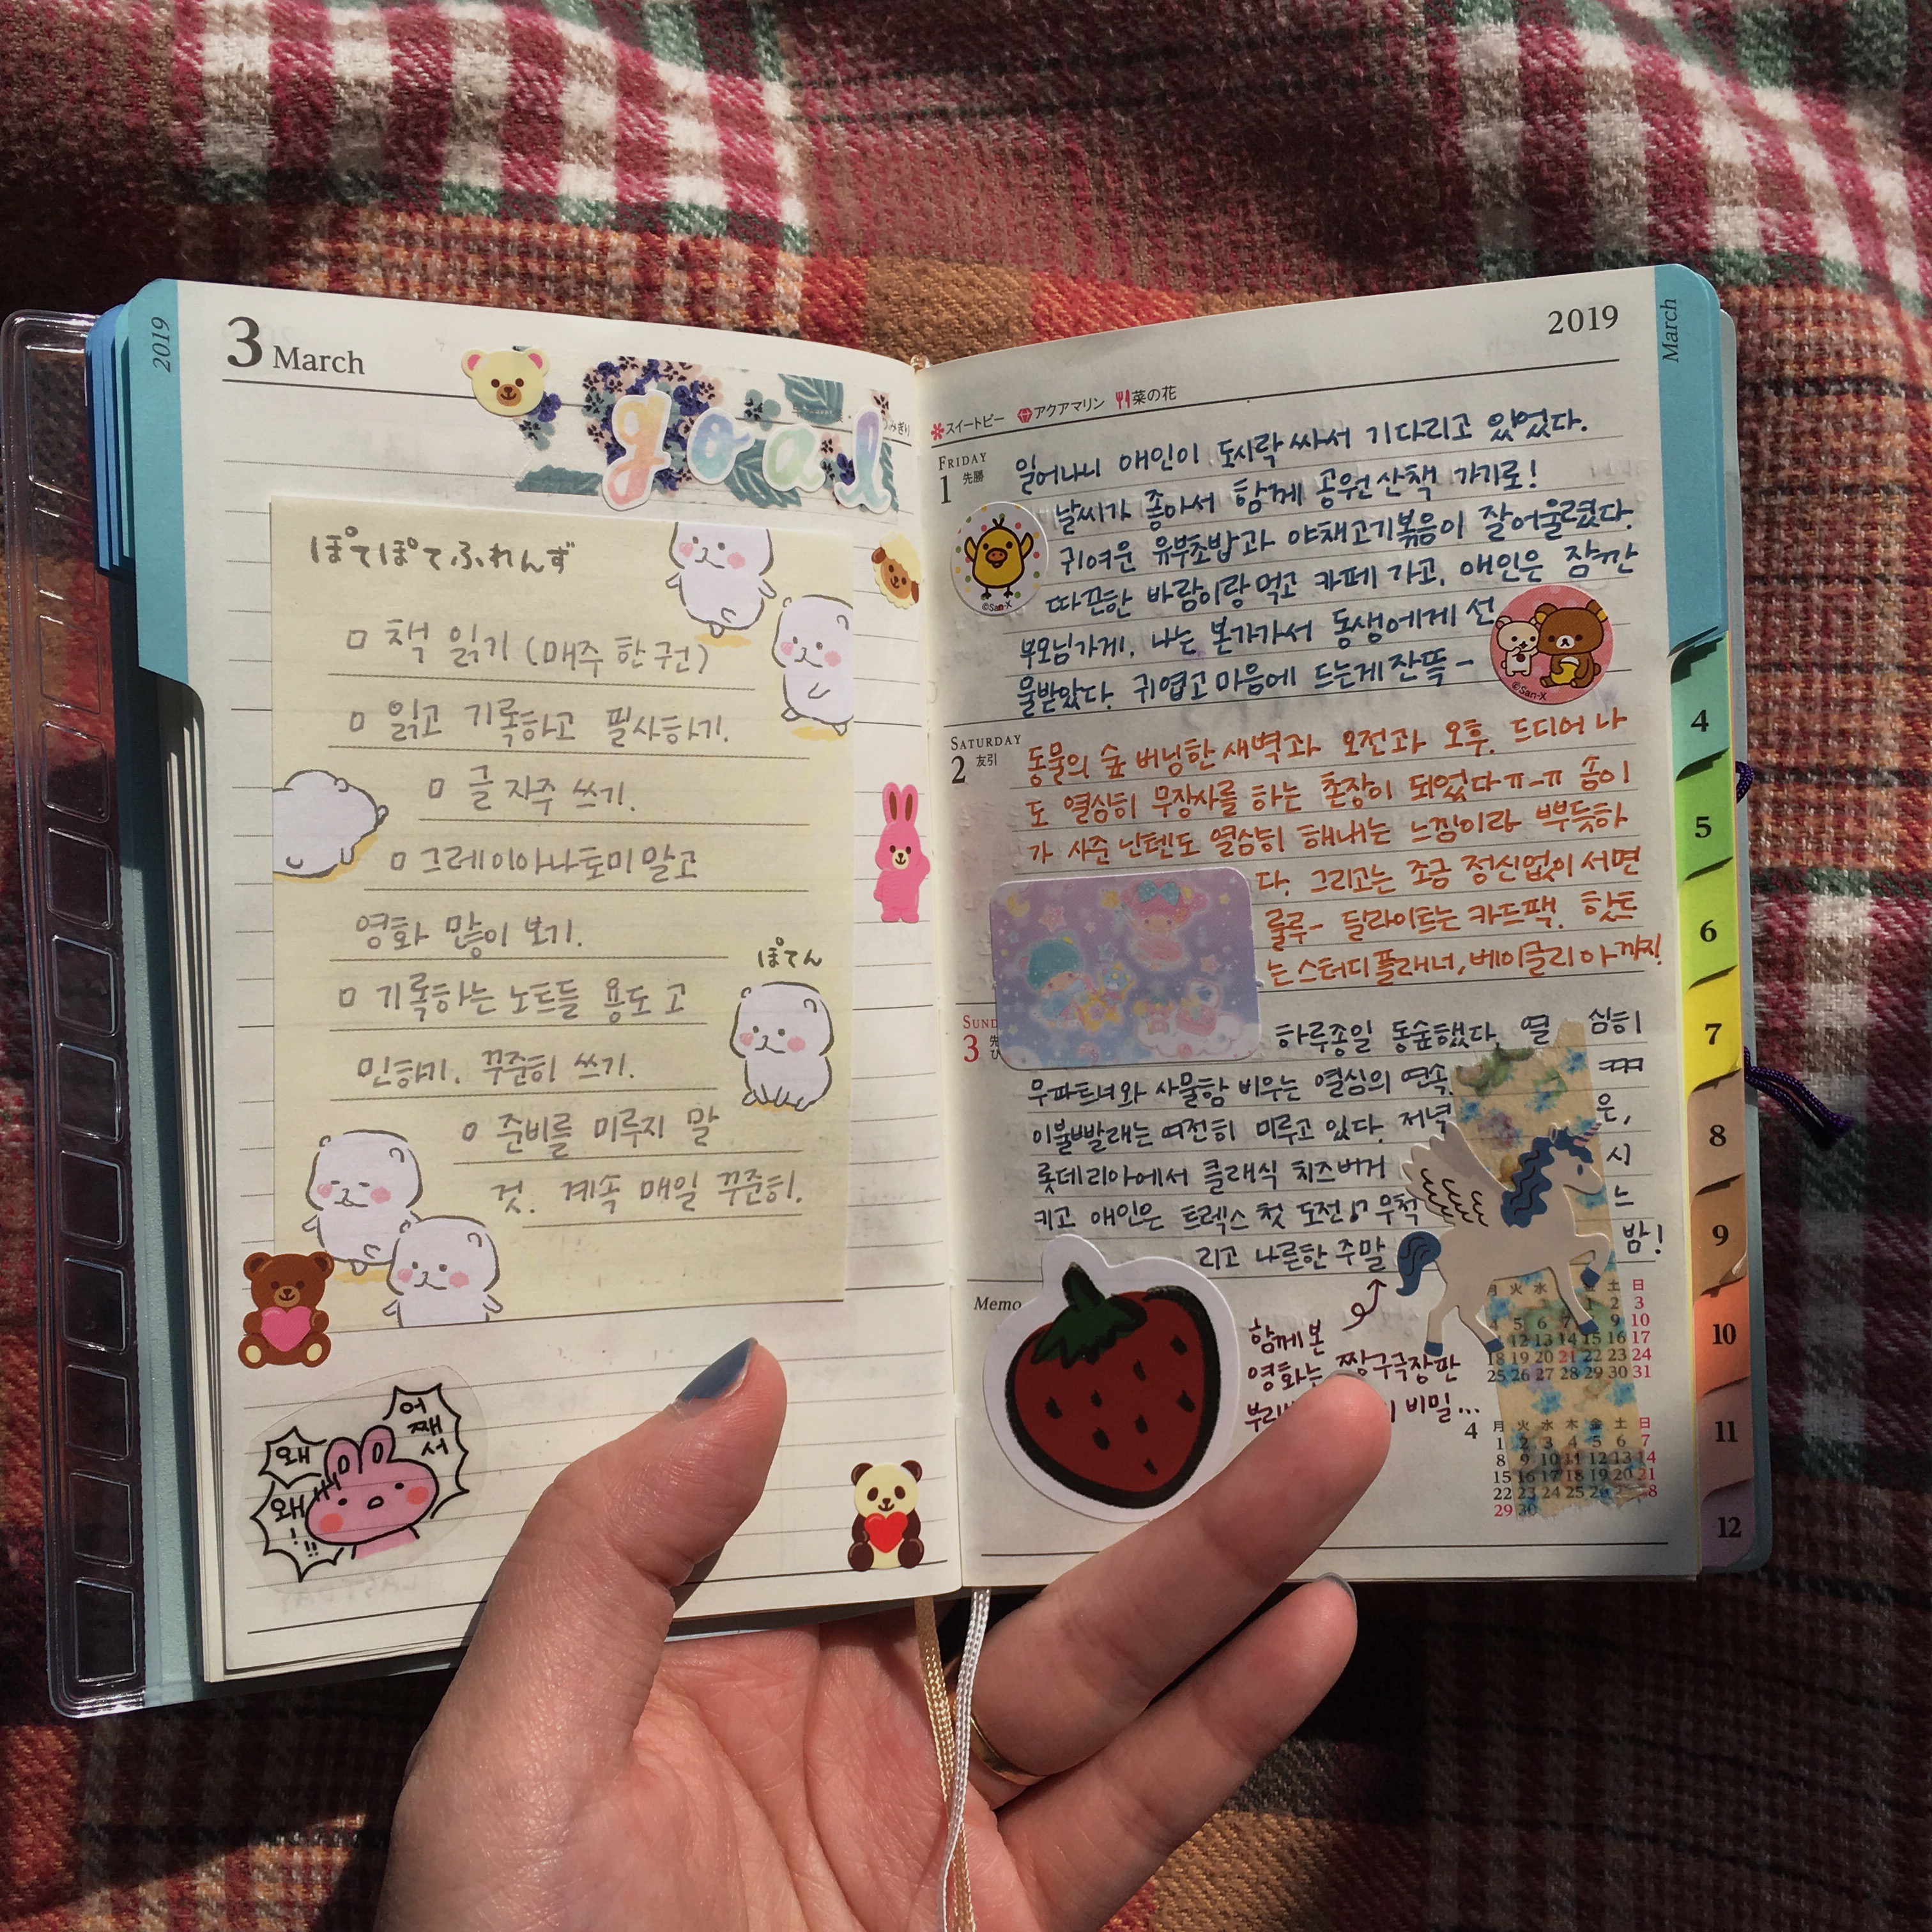 2019
3 March
goal
ぽてぽてふれんず
□ 책 읽기 (매주 한 권)
□ 읽고 기록하고 필사하기.
□ 글 자주 쓰기.
□ 그레이아나토미 말고
영화 많이 보기.
ぽてん
□ 기록하는 노트들 용도 고
민하기. 꾸준히 쓰기.
□ 준비를 미루지 말
것. 계속 매일 꾸준히.
어
째
서
왜
왜
!
!!
2019
March
スイートピー アクアマリン 菜の花
FRIDAY
1 先勝
일어나니 애인이 도시락 싸서 기다리고 있었다.
날씨가 좋아서 함께 공원 산책 가기로!
귀여운 유부초밥과 야채고기볶음이 잘어울렸다.
따끈한 바람이랑 먹고 카페 가고. 애인은 잠깐
부모님가게, 나는 본가가서 동생에게 선
물받았다. 귀엽고 마음에 드는게 잔뜩-
©San-X
©San-X
SATURDAY
2 友引
동물의 숲 버닝한 새벽과 오전과 오후. 드디어 나
도 열심히 무장사를 하는 촌장이 되었다ㅠ-ㅠ 송이
가 사준 닌텐도 열심히 해내는 느낌이라 뿌듯하
다. 그리고는 조금 정신없이 서면
룰루- 달라이트는 카드팩. 핫트
는 스터디플래너, 베이클리 아까지!
SUND
3 先
하루종일 동숲했다. 열 심히
무파트너와 사물함 비우는 열심의 연속.
이불빨래는 여전히 미루고 있다. 저녁 은,
롯데리아에서 클래식 치즈버거 시
키고 애인은 트렉스 첫 도전 무척 느
리고 나른한 주말 밤!
Memo
함께 본
영화는 짱구극장판
비밀...
月 火 水 土 日
1 2 3
4 5 6 7 9 10
12 13 14 15 16 17
18 19 20 21 22 23 24
25 26 27 28 29 30 31
4
月 火 水 木 金 土 日
1 2 3 4 5 6 7
8 9 10 11 12 13 14
15 16 17 18 19 20 21
22 23 24 25 26
29 30
4
5
6
7
8
9
10
11
12